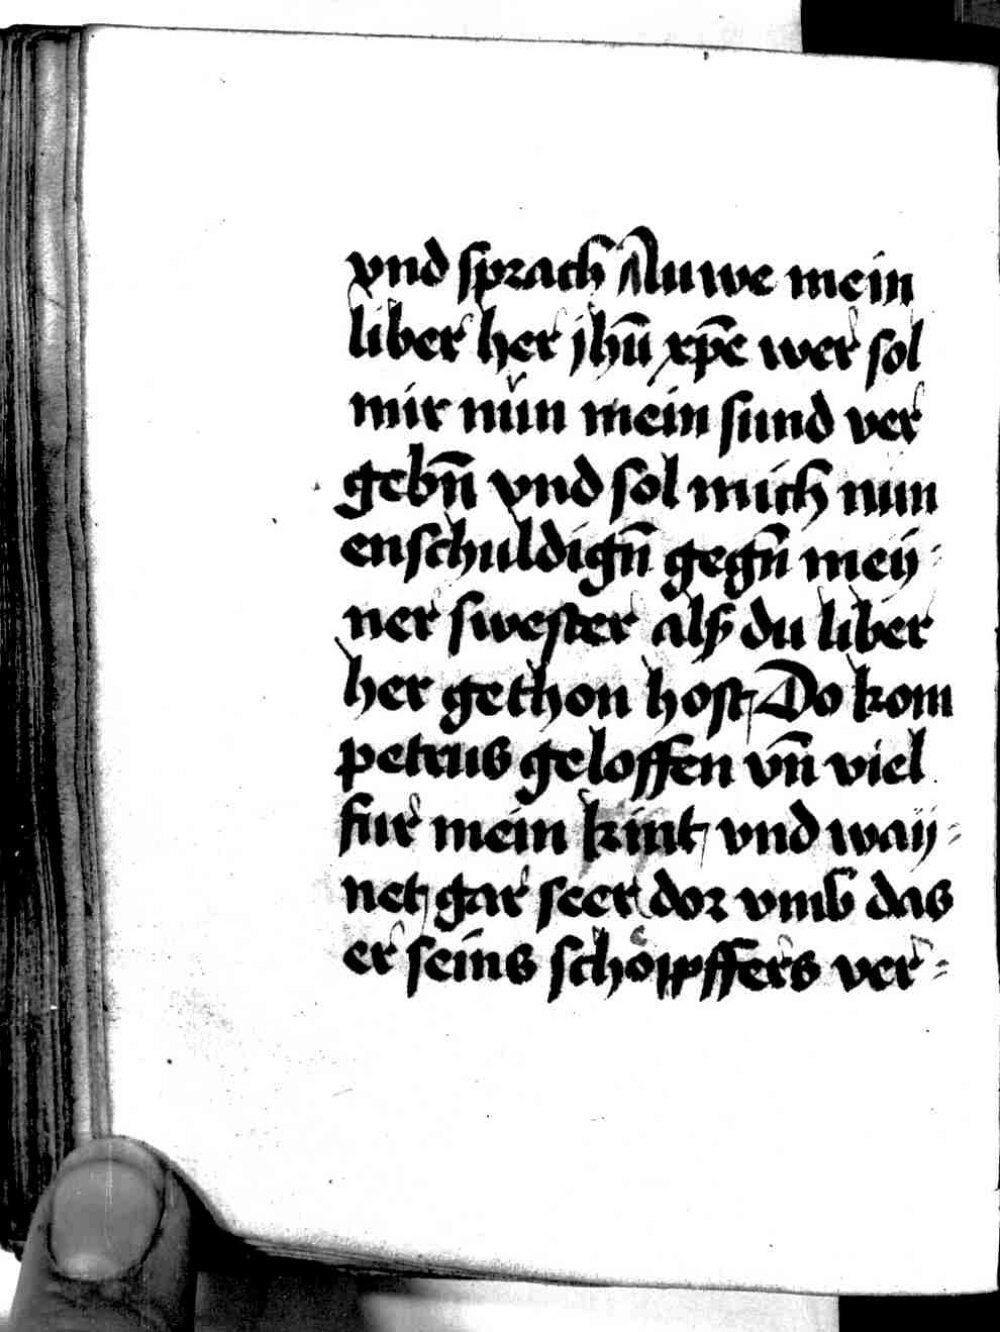 vnd sprach Auwe mein
liber her jhū xp̄e wer sol
mir nůn mein sund ver
gebn̄ vnd sol mich nun
enschuldign̄ gegn̄ meÿ-
ner swester alß du liber
her gethon host Do kom
petrus geloffen vn̄ viel
fur mein kint vnd waÿ-
net gar seer dor vmb das
er seins schöpffers ver-